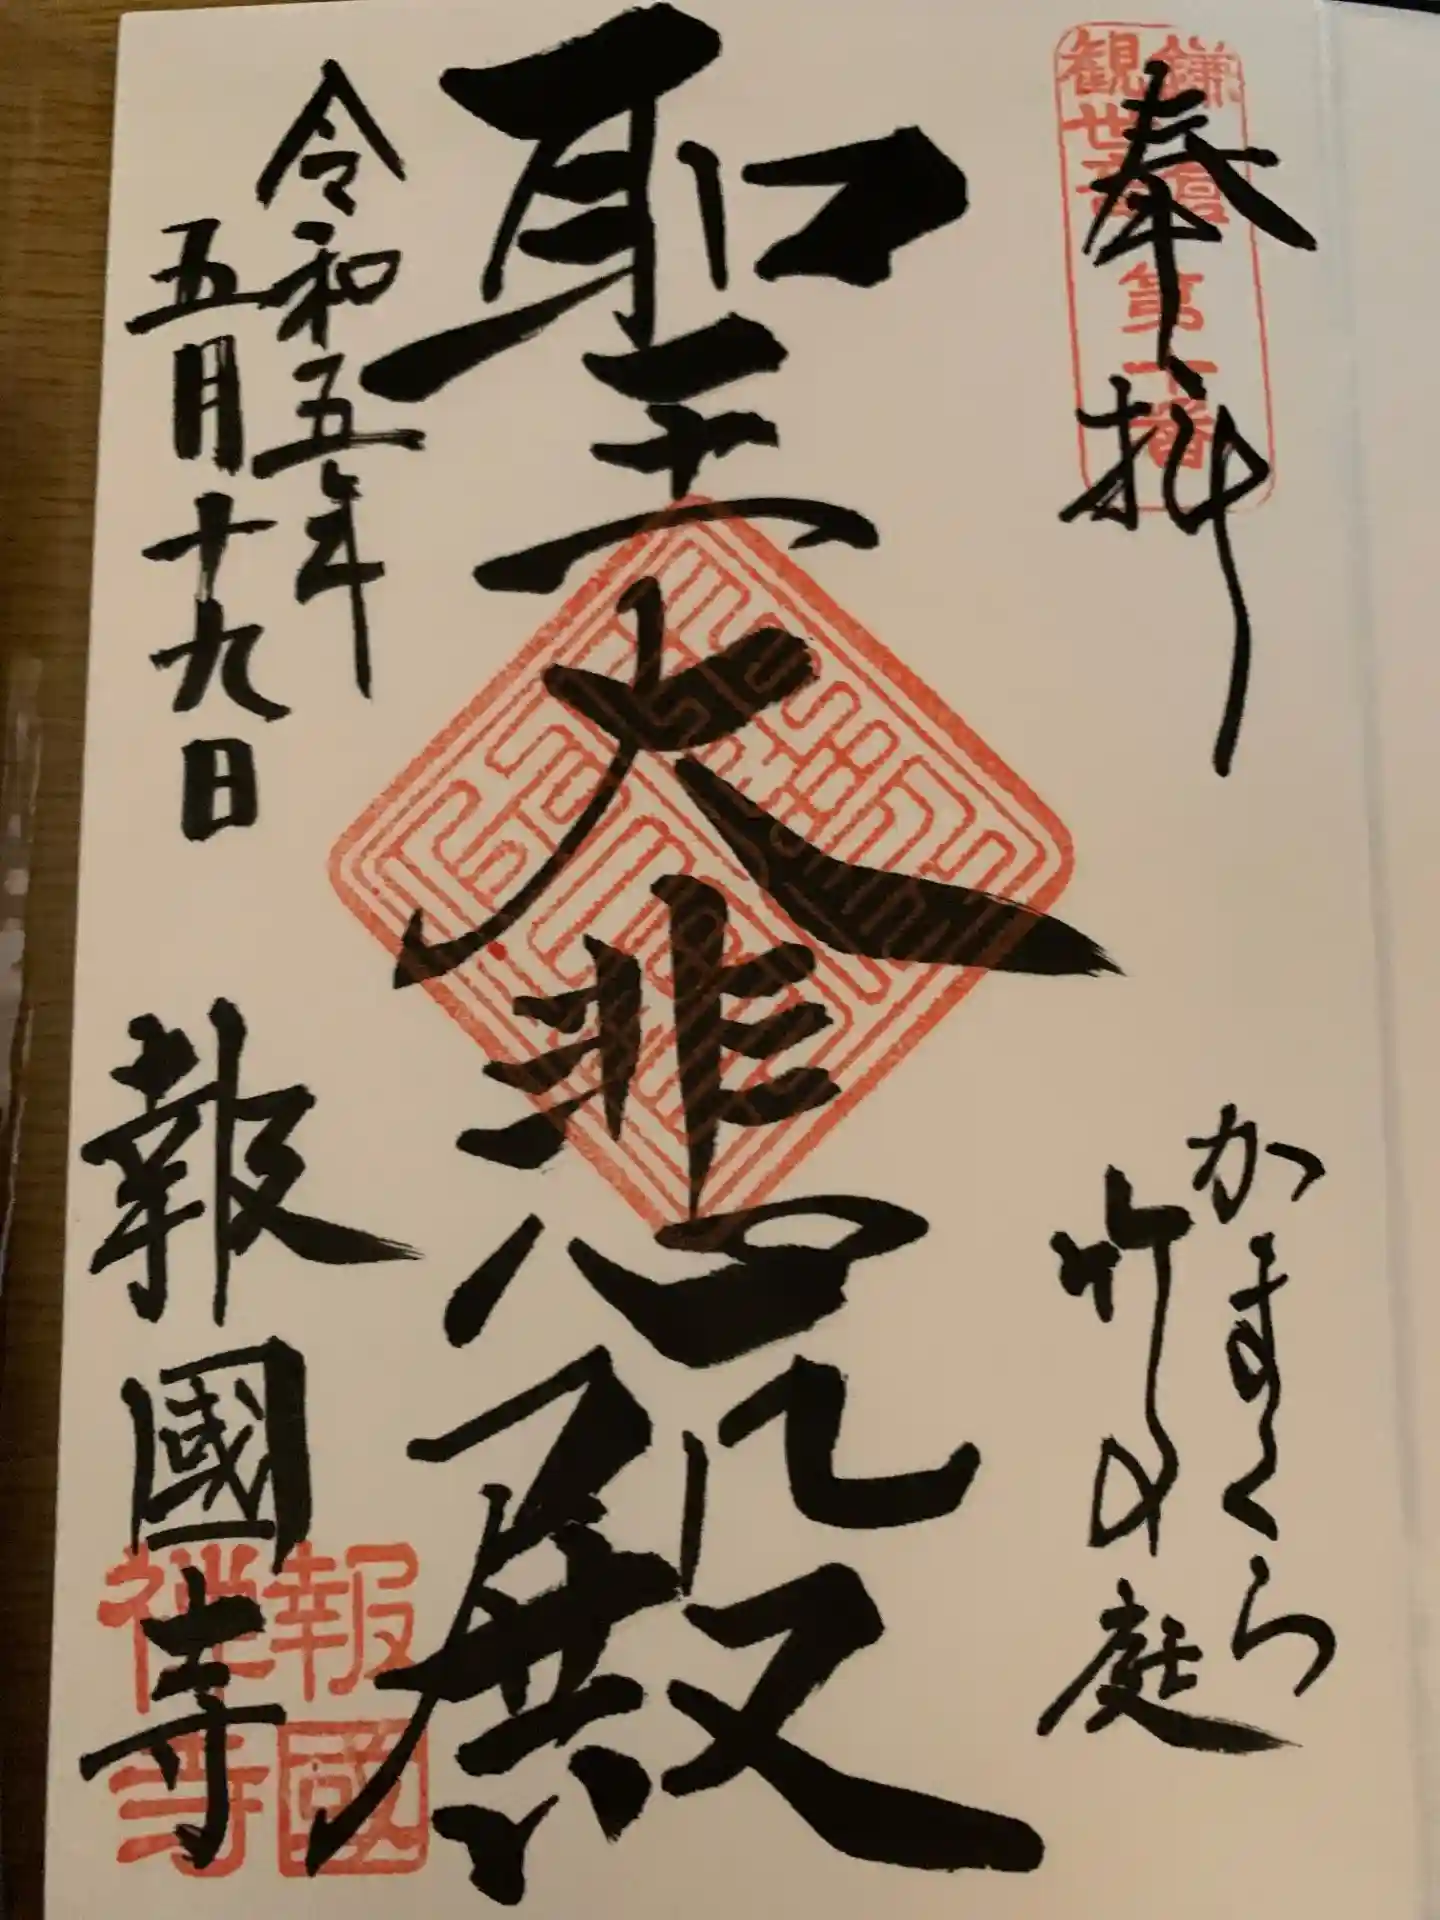 鎌倉
観世音
第十番
奉拝
かまくら
竹の庭
聖大悲殿
令和五年
五月十九日
報國寺
報國
禅寺